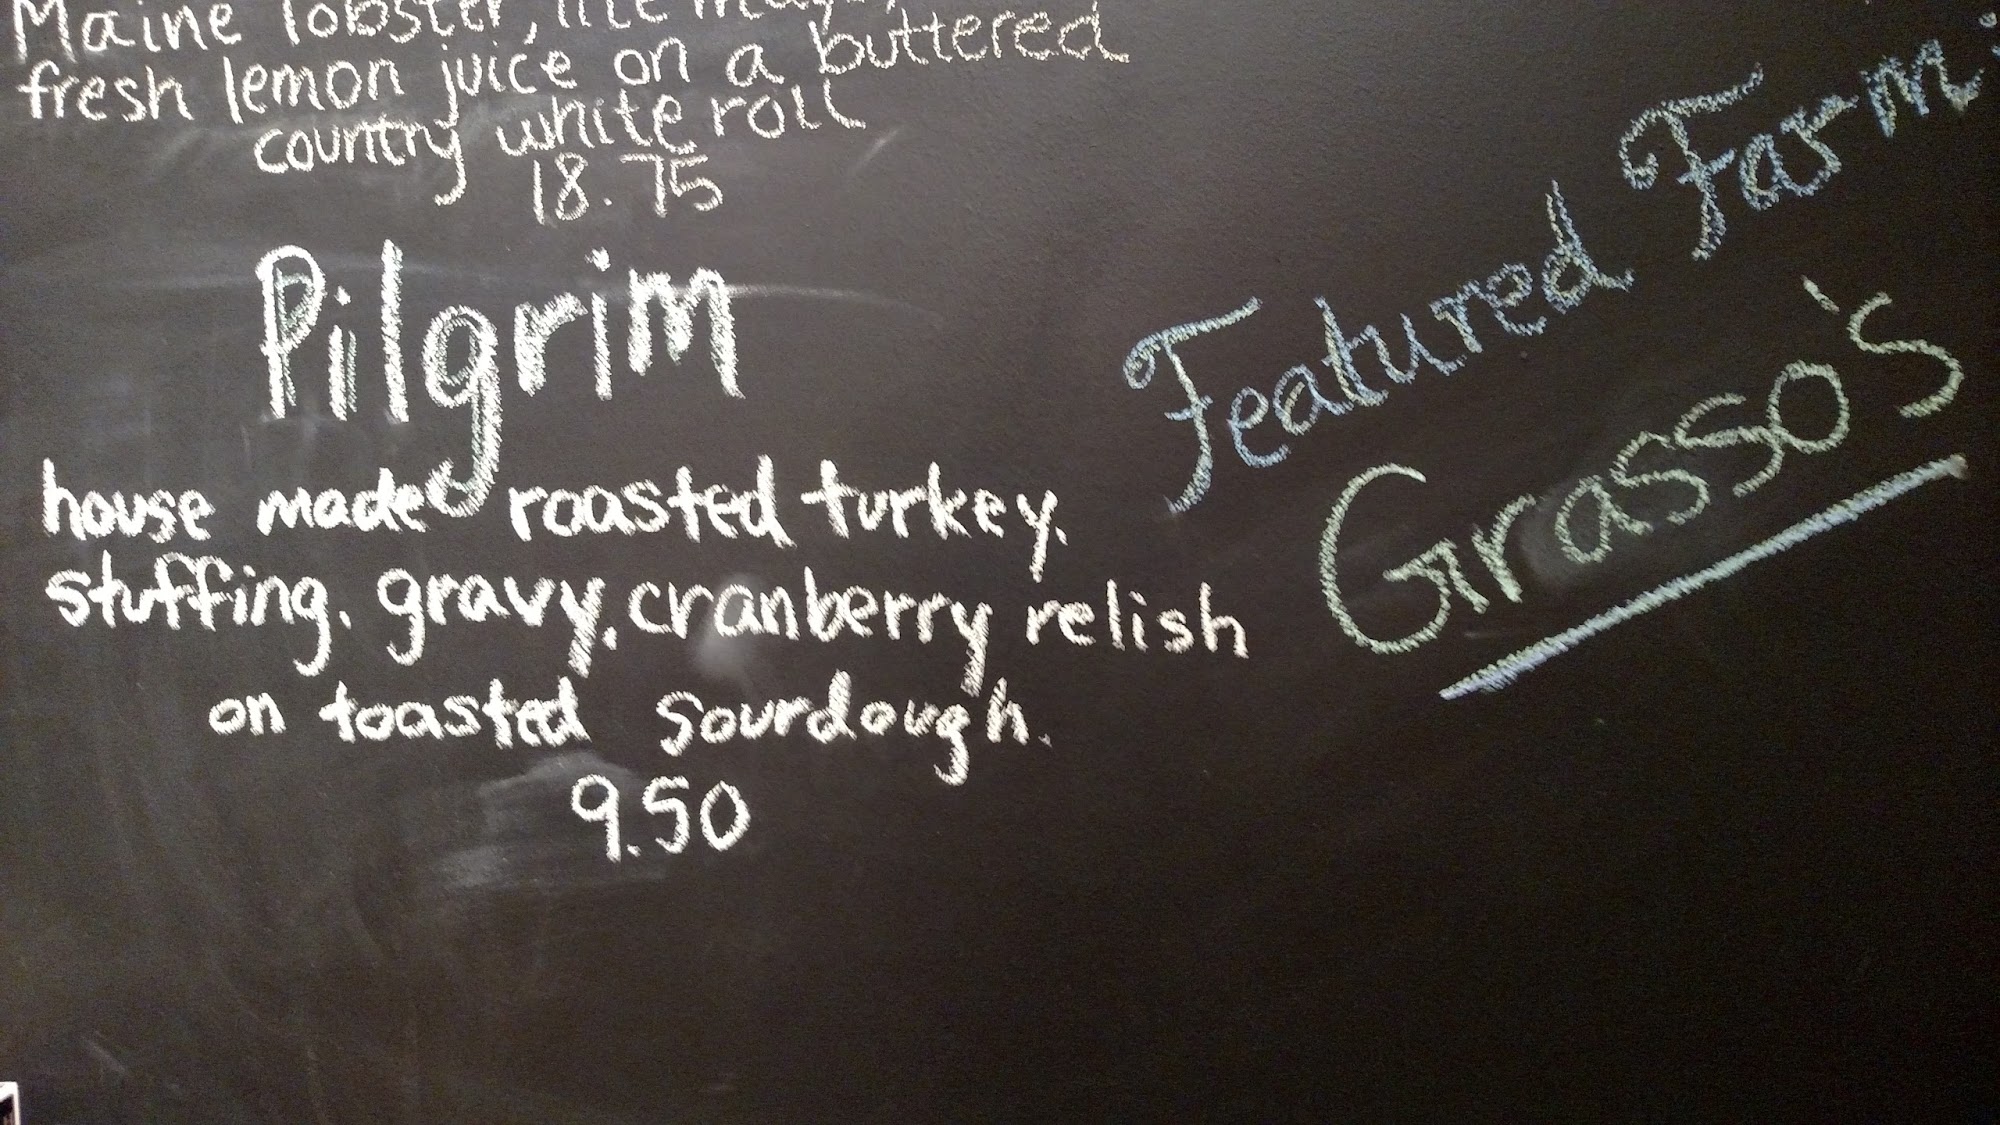 Maine lobster, lite mayo,
fresh lemon juice on a buttered
country white roll
18.75
Pilgrim
house made roasted turkey.
stuffing, gravy, cranberry relish
on toasted sourdough.
9.50
Featured Farm:
Grasso's